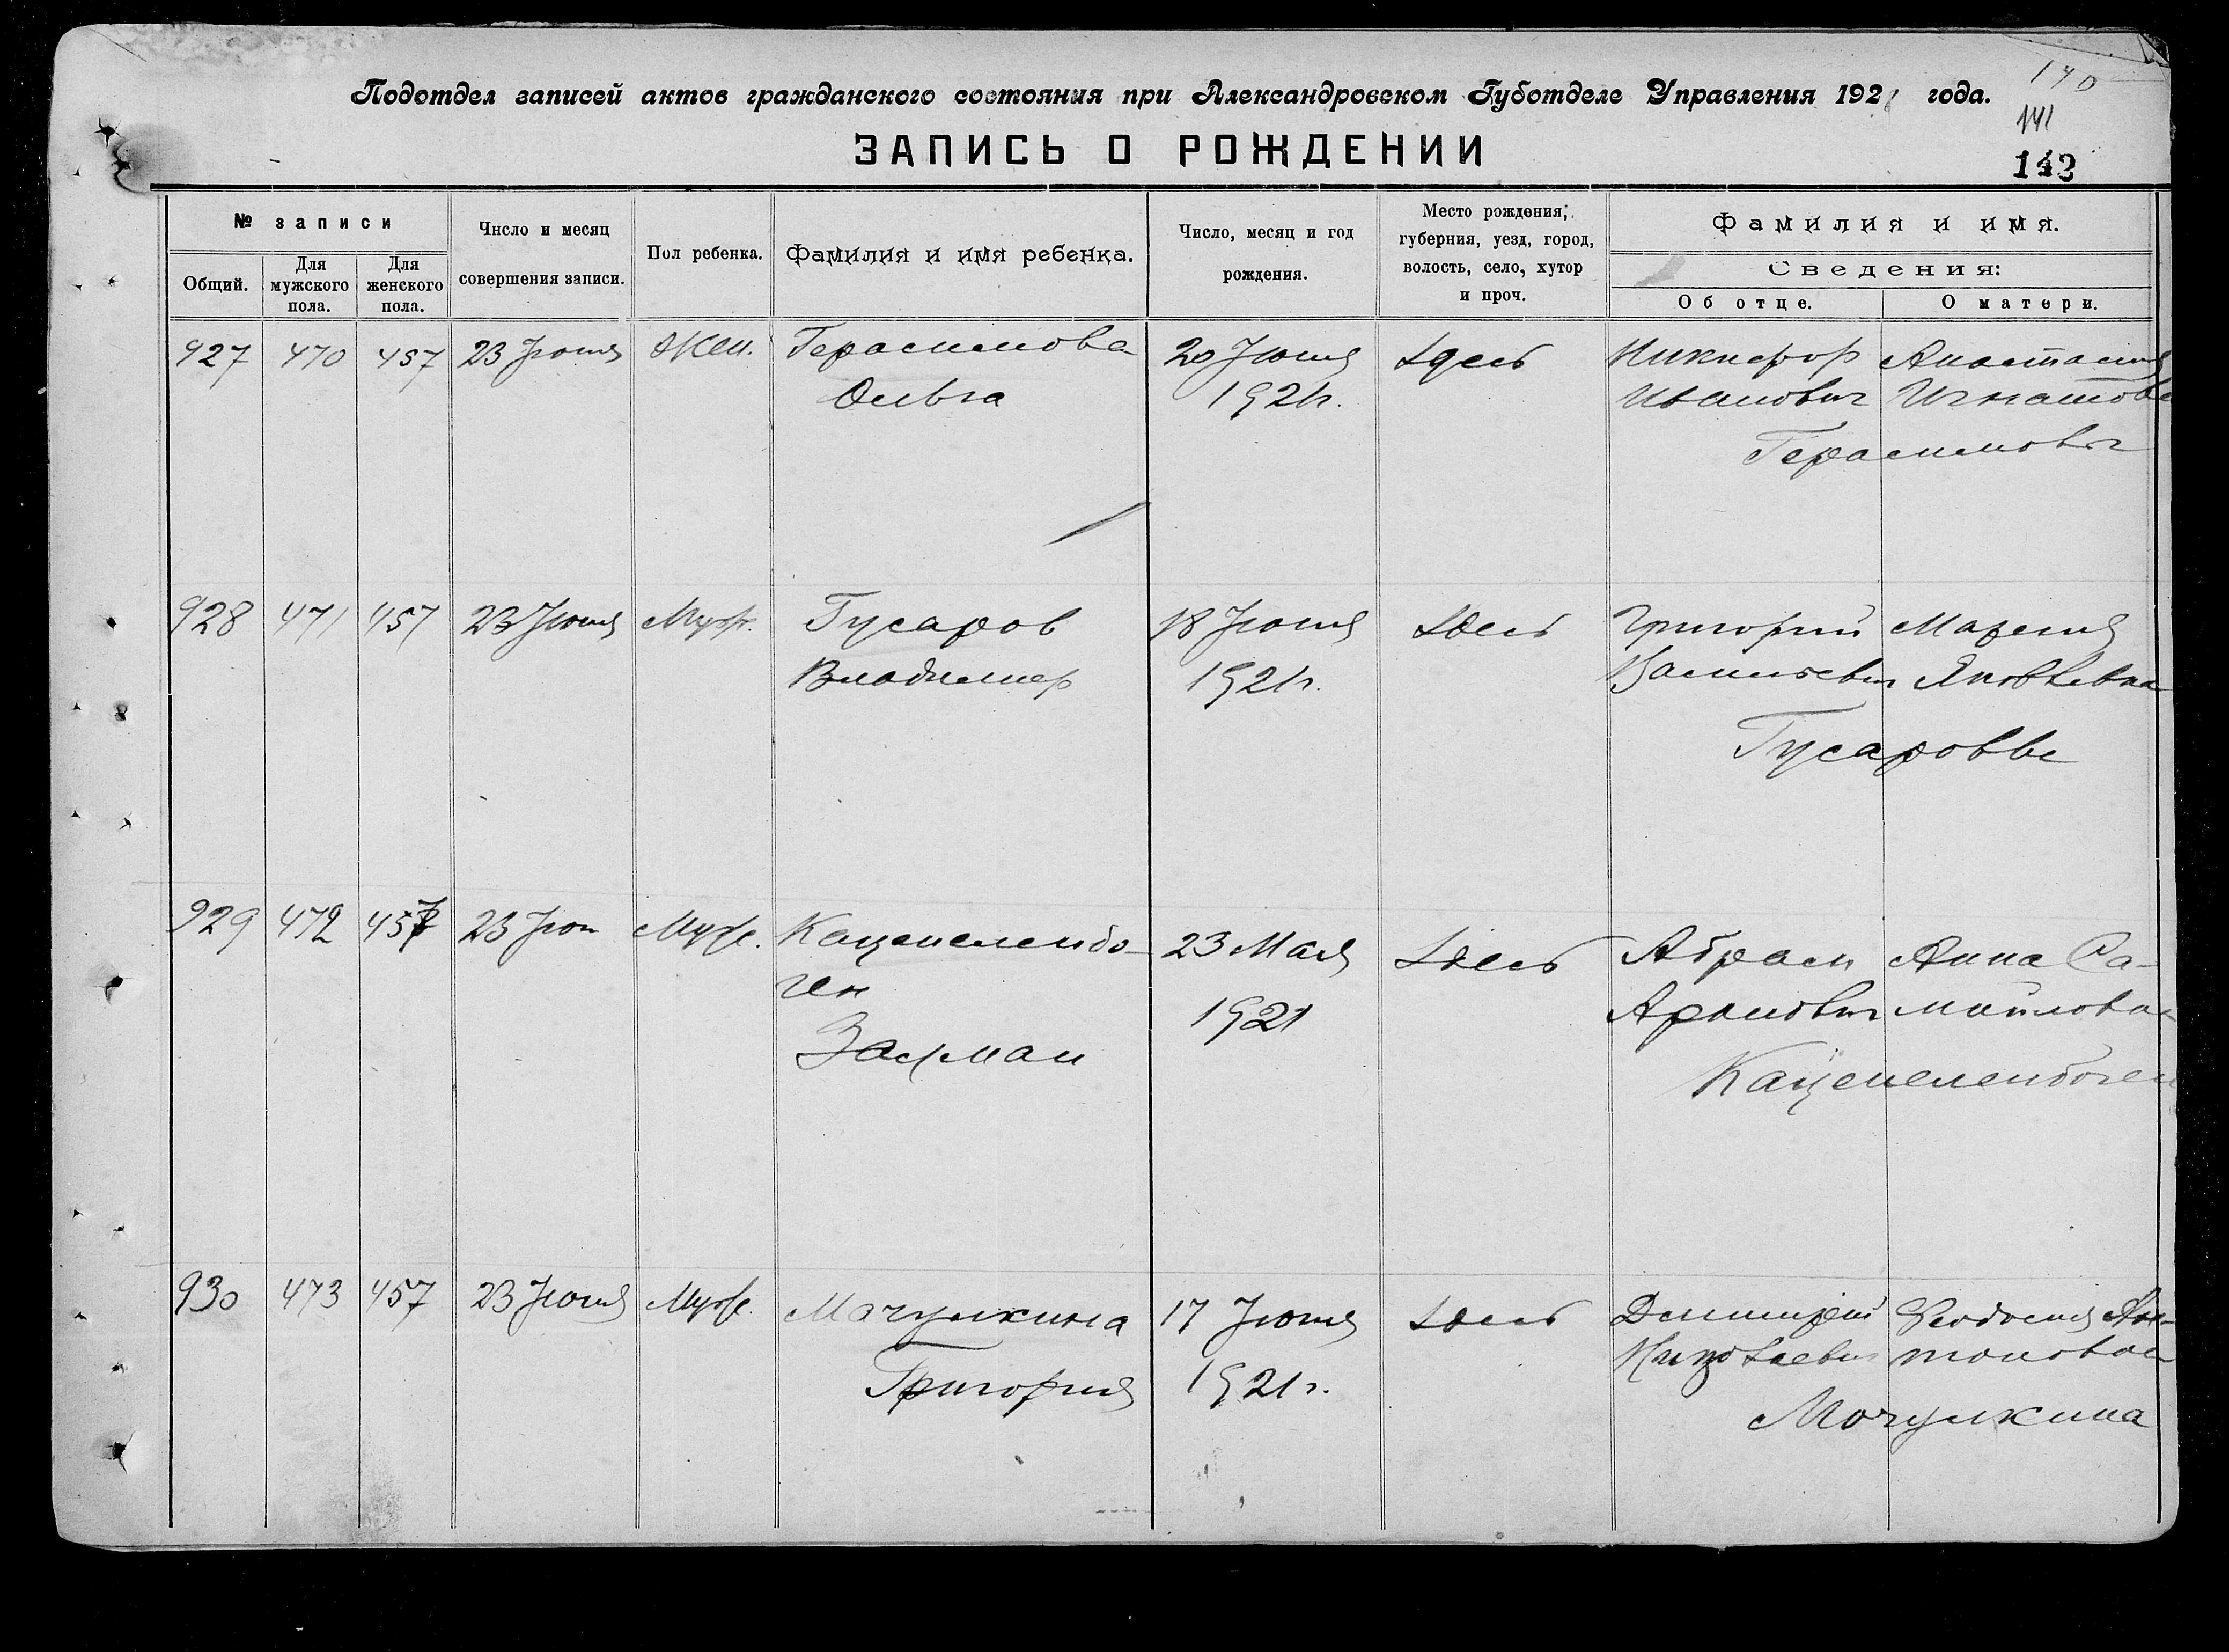 Подотдел записей актов гражданского состояния при Александровском Губотделе Управления 192 года.
140
141
ЗАПИСЬ О РОЖДЕНИИ
143
№ записи
Общий.
Для мужского пола.
Для женского пола.
Число и месяц совершения записи.
Пол ребенка.
Фамилия и имя ребенка.
Число, месяц и год рождения.
Место рождения; губерния, уезд, город, волость, село, хутор и проч.
Фамилия и имя.
Сведения:
Об отце.
О матери.
927 470 457 23 Июня Жен. Герасимова 20 Июня Здесь Никифор Анастасия
Ольга 1921г. Иванович Игнатова
Герасимовы
928 471 457 23 Июня Муж. Гусаров 18 Июня Здесь Григорий Мария
Владимир 1921г. Васильевич Яковлевна
Гусаровы
929 472 457 23 Июн Муж. Каценеленбо- 23 Мая Здесь Абрам Анна Са-
ген Аронович мойловна
Залман 1921
Каценеленбоген
930 473 457 23 Июня Муж. Мачулкина 17 Июня Здесь Дмитрий Феодосия Ан-
Григория 1921г. Николаевич тоновна
Мочулкина